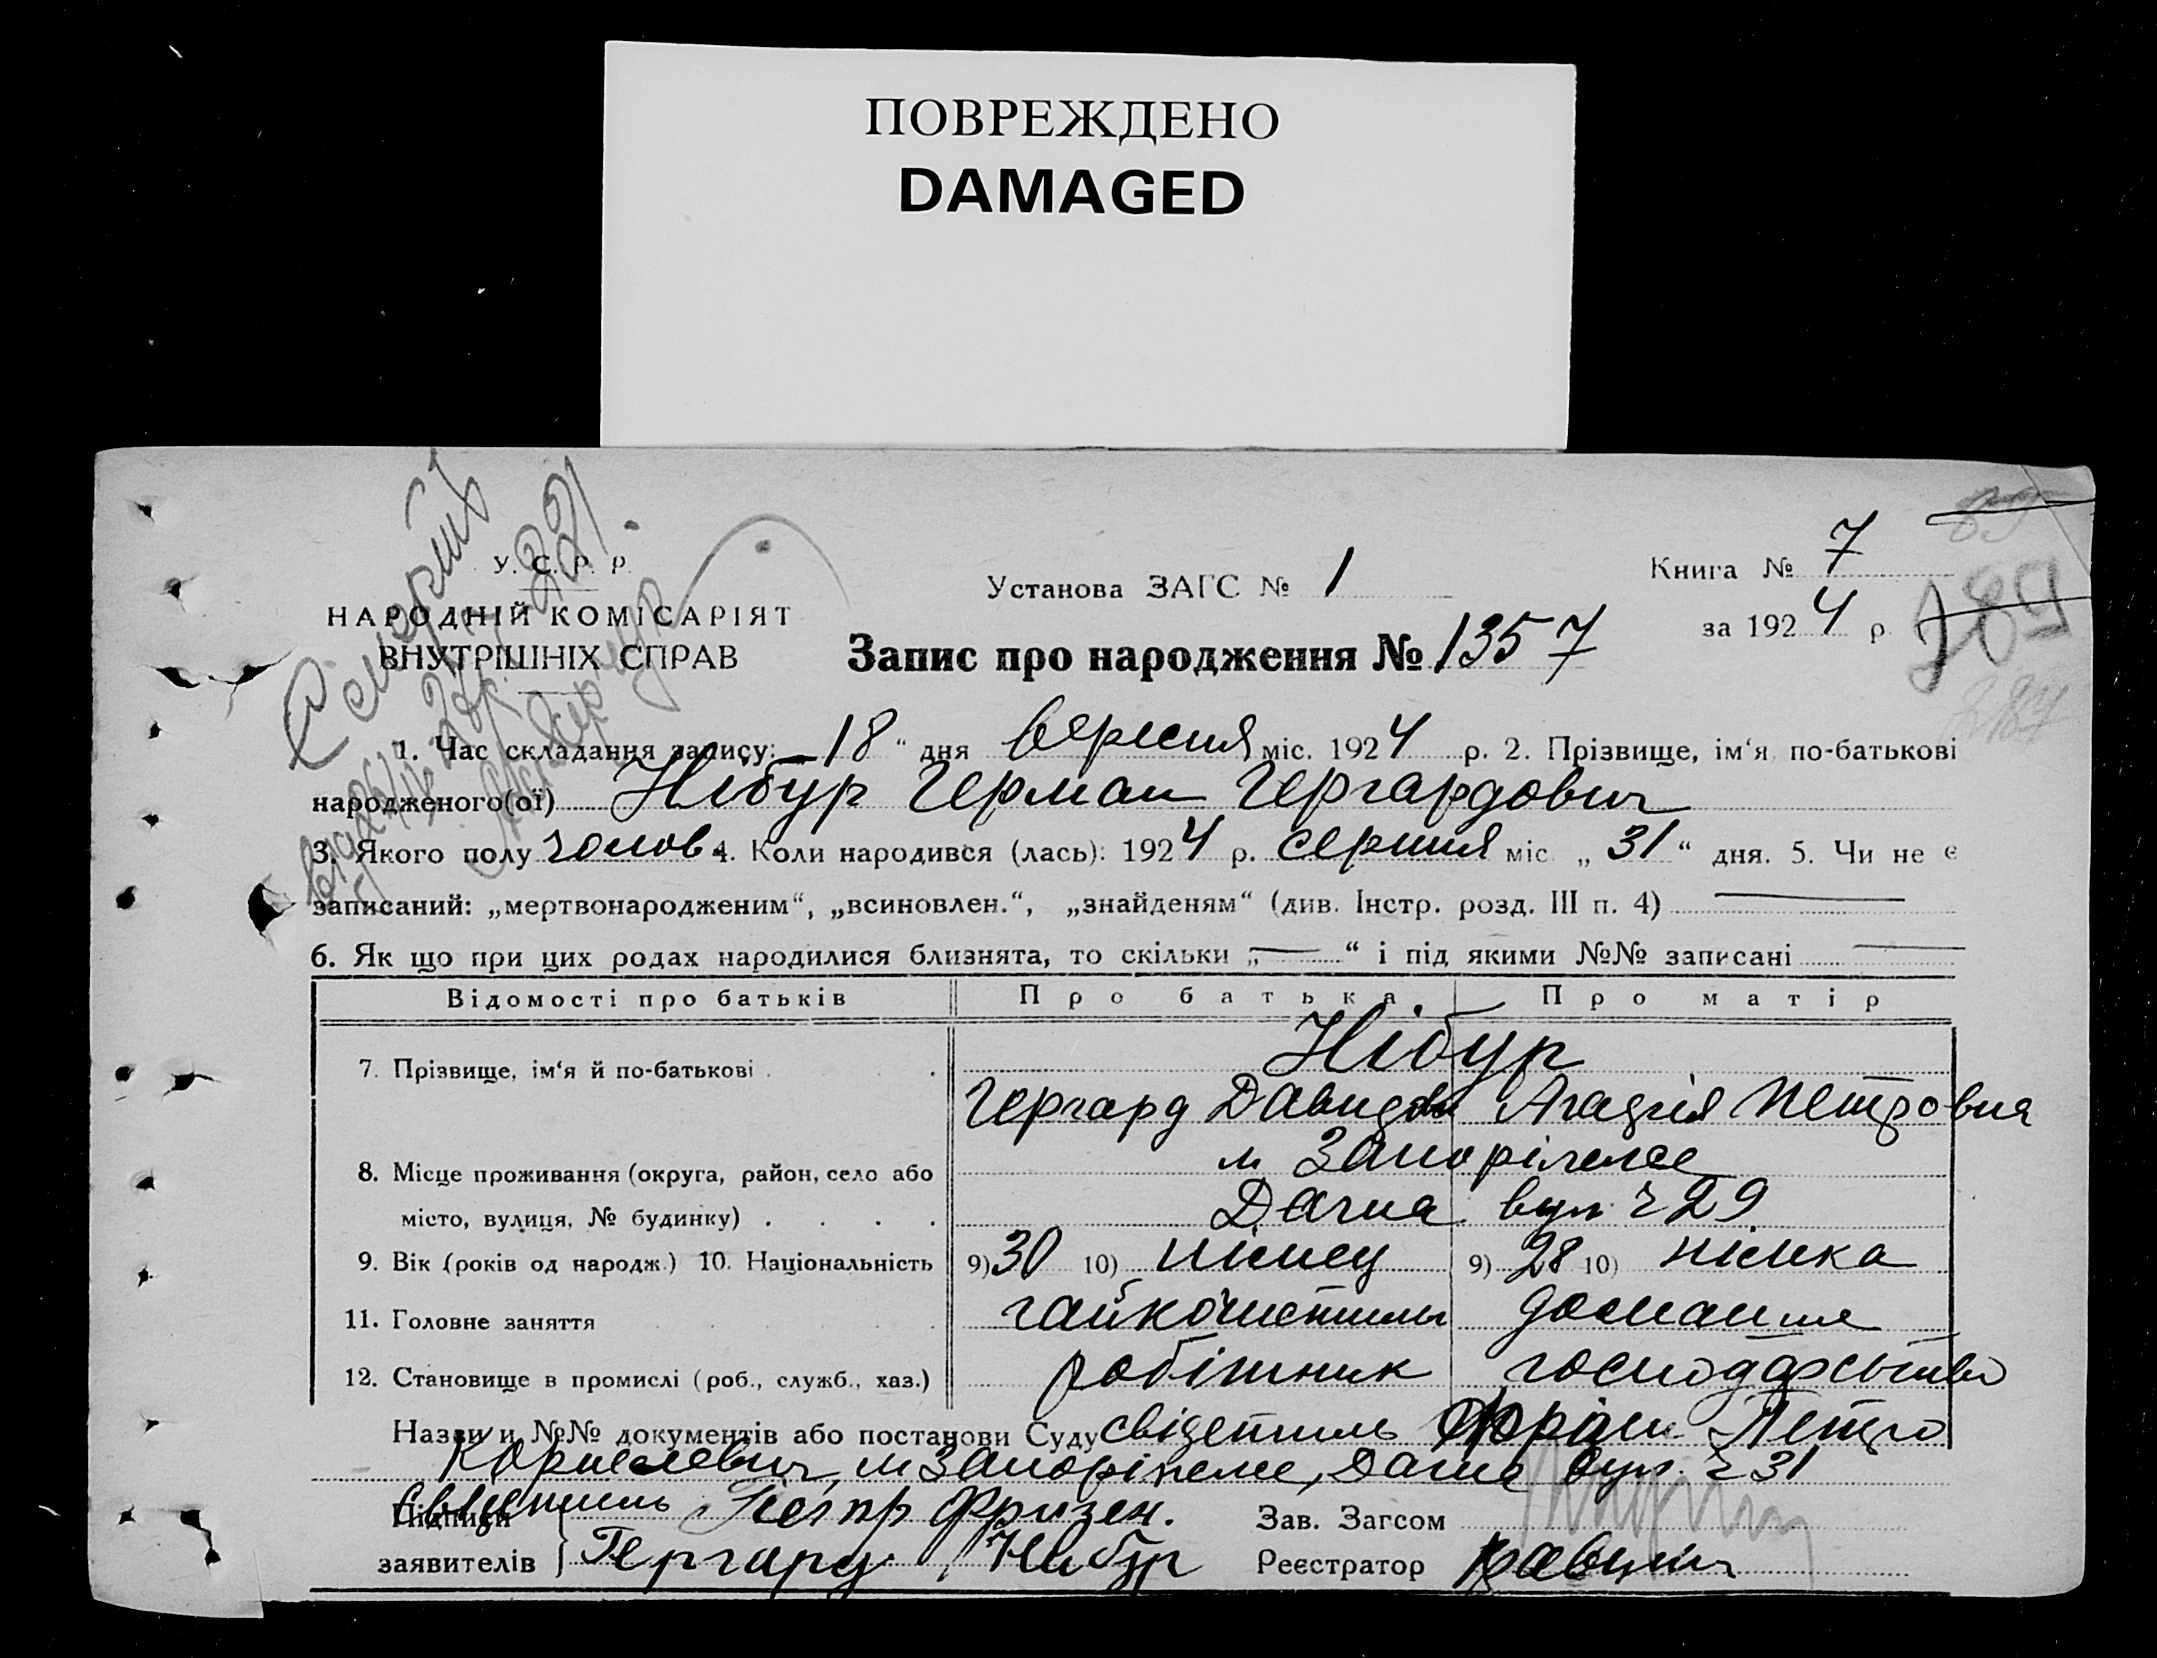 ПОВРЕЖДЕНО
DAMAGED
У. С. Р. Р.
НАРОДНІЙ КОМІСАРІЯТ
ВНУТРІШНІХ СПРАВ
Установа ЗАГС № 1
Книга № 7
за 1924 р.
Запис про народження № 1357
1. Час складання запису: „18“ дня вересня міс. 1924 р. 2. Прізвище, ім‘я по-батькові
народженого(ої) Нібур Герман Гергардович
3. Якого полу чолов. 4. Коли народився (лась): 1924 р. серпня міс. „31“ дня. 5. Чи не є
записаний: „мертвонародженим“, „всиновлен.“, „знайденям“ (див. Інстр. розд. III п. 4) —
6. Як що при цих родах народилися близнята, то скільки „—“ і під якими №№ записані —
Відомості про батьків Про батька Про матір
7. Прізвище, ім‘я й по-батькові Нібур
Гергард Давидов Петровна
8. Місце проживання (округа, район, село або м Запоріжже
місто, вулиця, № будинку) Дачна вул ч 29
9. Вік (років од народж.) 10. Національність 9) 30 10) німец 9) 28 10) німка
11. Головне заняття домашня
12. Становище в промислі (роб., служб., хаз.) робітник господарство
Назви и №№ документів або постанови Суду свідетиль Петро
Корнелевич, м Запоріжже, Дачна вул. ч 31
Підписи Свідетиль Петр Фризен. Зав. Загсом
заявителів Гергард Нибур Реєстратор